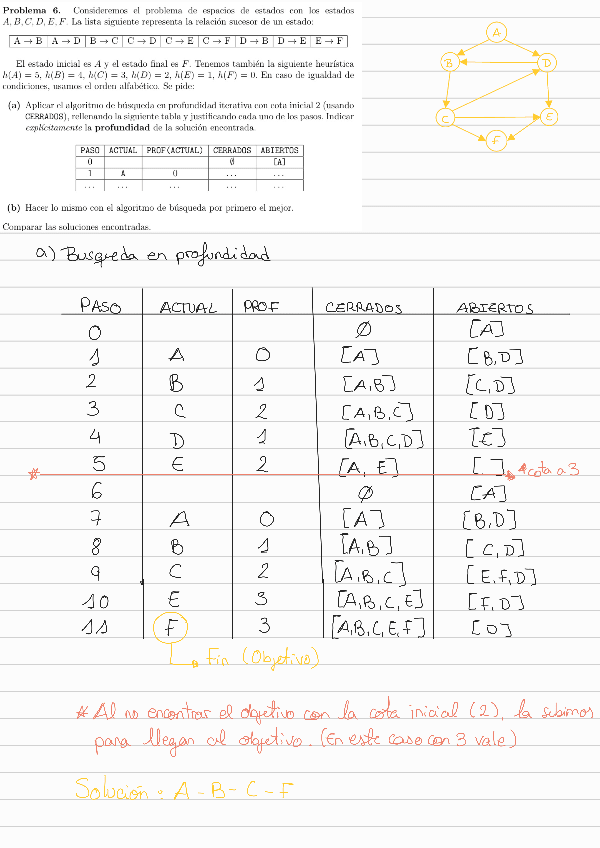 Problema 6. Consideremos el problema de espacios de estados con los estados
A, B, C, D, E, F. La lista siguiente representa la relación sucesor de un estado:
A → B | A → D | B → C | C → D | C → E | C → F | D → B | D → E | E → F
El estado inicial es A y el estado final es F. Tenemos también la siguiente heurística
h(A) = 5, h(B) = 4, h(C) = 3, h(D) = 2, h(E) = 1, h(F) = 0. En caso de igualdad de
condiciones, usamos el orden alfabético. Se pide:
(a) Aplicar el algoritmo de búsqueda en profundidad iterativa con cota inicial 2 (usando
CERRADOS), rellenando la siguiente tabla y justificando cada uno de los pasos. Indicar
explícitamente la profundidad de la solución encontrada.
PASO | ACTUAL | PROF(ACTUAL) | CERRADOS | ABIERTOS
0 | | | ∅ | [A]
1 | A | 0 | ... | ...
... | ... | ... | ... | ...
(b) Hacer lo mismo con el algoritmo de búsqueda por primero el mejor.
Comparar las soluciones encontradas.
A
B
D
C
E
F
a) Busqueda en profundidad
PASO | ACTUAL | PROF | CERRADOS | ABIERTOS
0 | | | ∅ | [A]
1 | A | 0 | [A] | [B,D]
2 | B | 1 | [A,B] | [C,D]
3 | C | 2 | [A,B,C] | [D]
4 | D | 1 | [A,B,C,D] | [E]
5 | E | 2 | [A, E] | [ ]
* cota a 3
6 | | | ∅ | [A]
7 | A | 0 | [A] | [B,D]
8 | B | 1 | [A,B] | [C,D]
9 | C | 2 | [A,B,C] | [E,F,D]
10 | E | 3 | [A,B,C,E] | [F,D]
11 | F | 3 | [A,B,C,E,F] | [D]
Fin (Objetivo)
* Al no encontrar el objetivo con la cota inicial (2), la subimos
para llegan al objetivo. (En este caso con 3 vale)
Solución: A - B - C - F